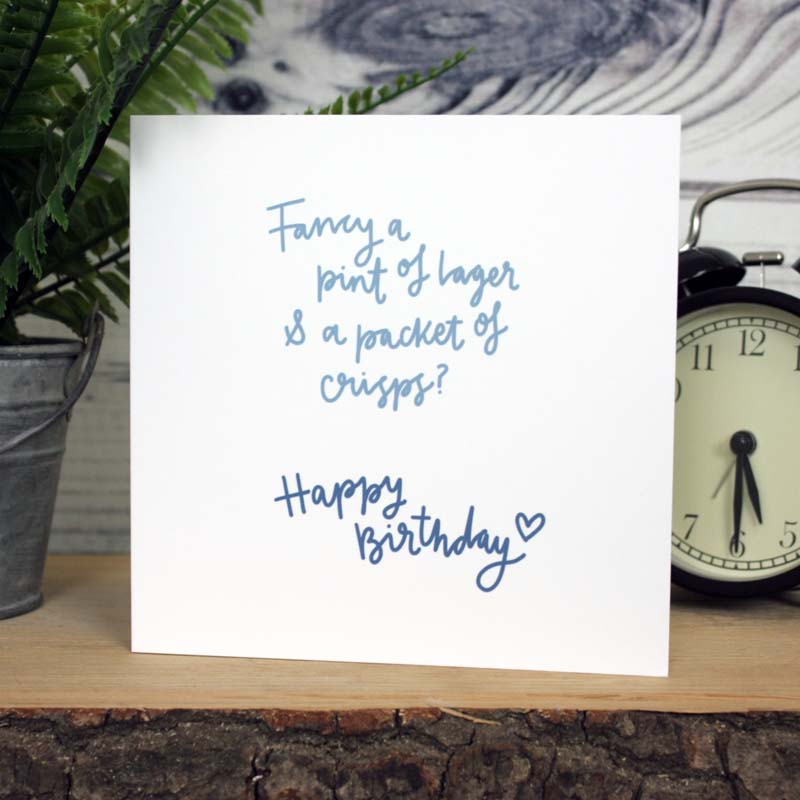 Fancy a
pint of lager
& a packet of
crisps?
Happy
Birthday♡
11 12 1
7 6 5